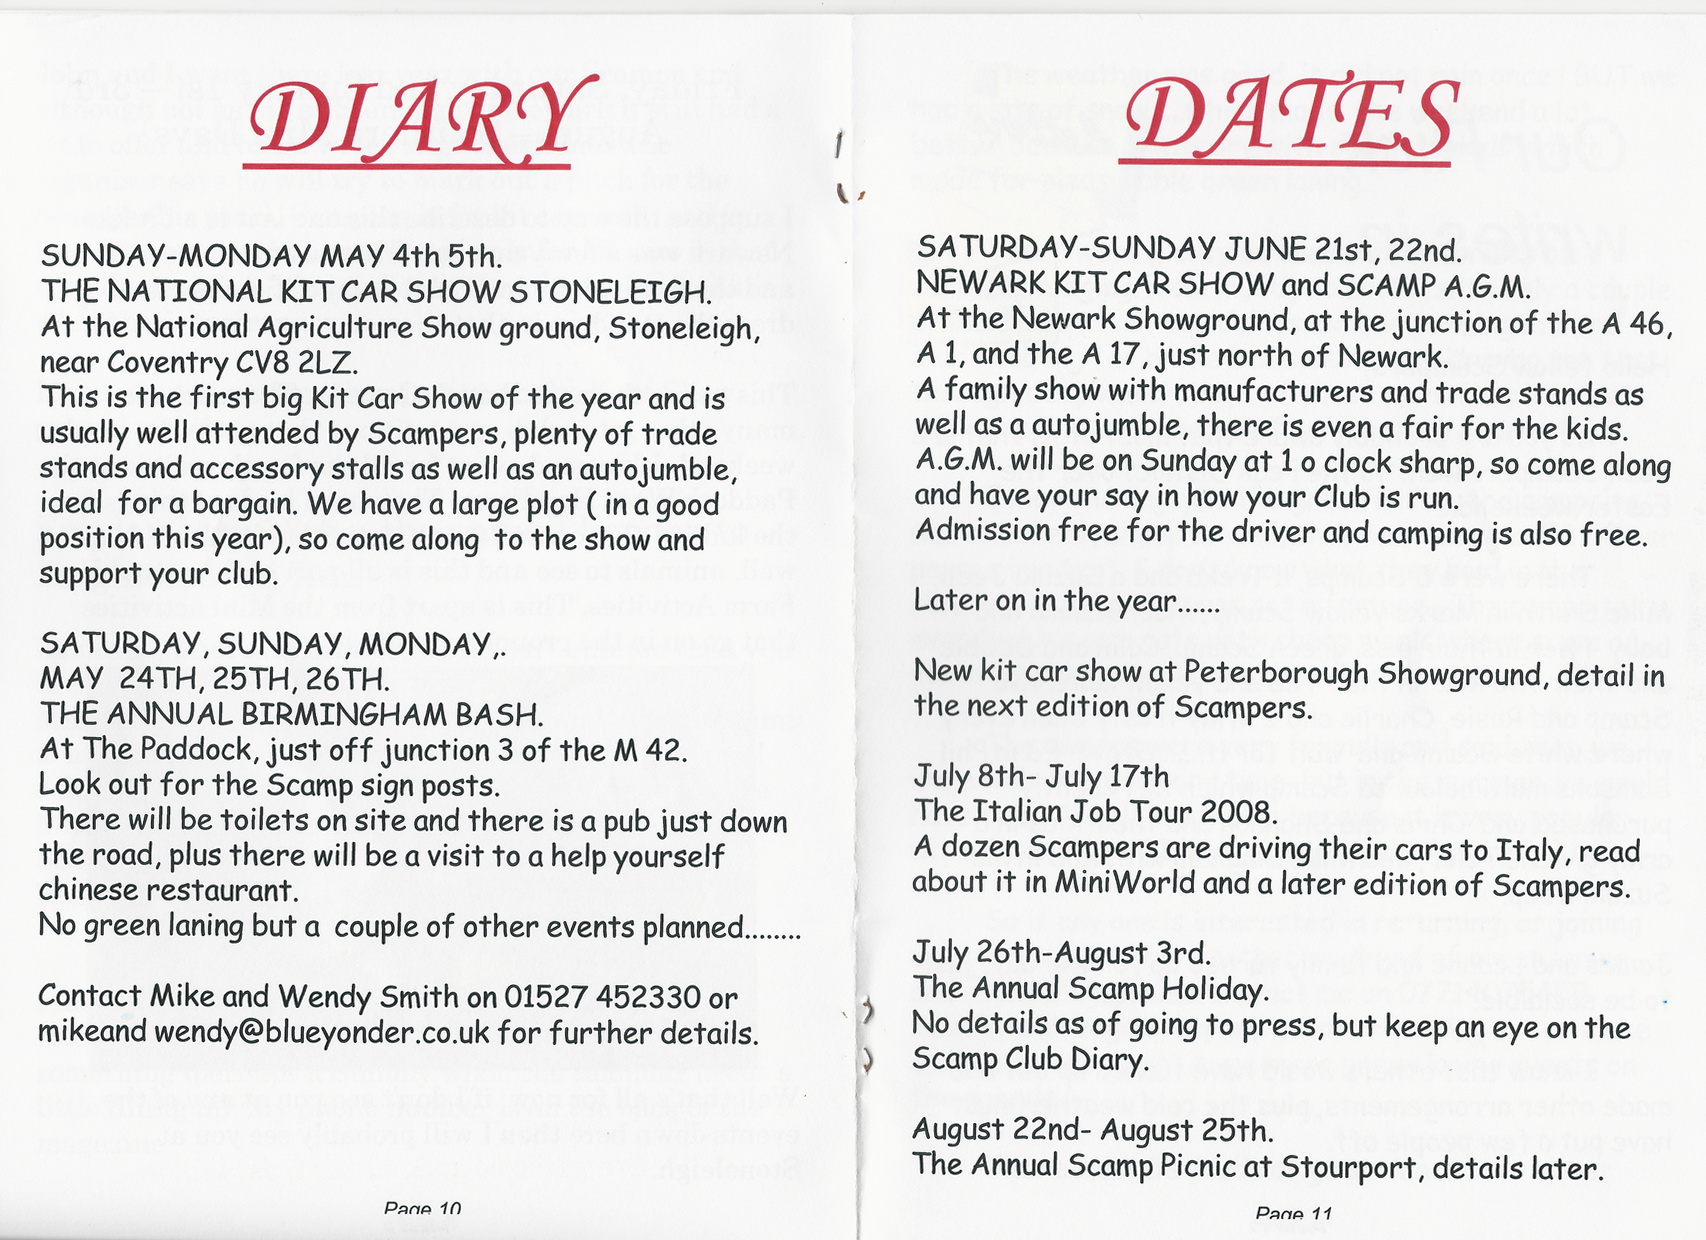 DIARY
SUNDAY-MONDAY MAY 4th 5th.
THE NATIONAL KIT CAR SHOW STONELEIGH.
At the National Agriculture Show ground, Stoneleigh,
near Coventry CV8 2LZ.
This is the first big Kit Car Show of the year and is
usually well attended by Scampers, plenty of trade
stands and accessory stalls as well as an autojumble,
ideal  for a bargain. We have a large plot ( in a good
position this year), so come along  to the show and
support your club.
SATURDAY, SUNDAY, MONDAY,.
MAY  24TH, 25TH, 26TH.
THE ANNUAL BIRMINGHAM BASH.
At The Paddock, just off junction 3 of the M 42.
Look out for the Scamp sign posts.
There will be toilets on site and there is a pub just down
the road, plus there will be a visit to a help yourself
chinese restaurant.
No green laning but a  couple of other events planned........
Contact Mike and Wendy Smith on 01527 452330 or
mikeand wendy@blueyonder.co.uk for further details.
Page 10
DATES
SATURDAY-SUNDAY JUNE 21st, 22nd.
NEWARK KIT CAR SHOW and SCAMP A.G.M.
At the Newark Showground, at the junction of the A 46,
A 1, and the A 17, just north of Newark.
A family show with manufacturers and trade stands as
well as a autojumble, there is even a fair for the kids.
A.G.M. will be on Sunday at 1 o clock sharp, so come along
and have your say in how your Club is run.
Admission free for the driver and camping is also free.
Later on in the year......
New kit car show at Peterborough Showground, detail in
the next edition of Scampers.
July 8th- July 17th
The Italian Job Tour 2008.
A dozen Scampers are driving their cars to Italy, read
about it in MiniWorld and a later edition of Scampers.
July 26th-August 3rd.
The Annual Scamp Holiday.
No details as of going to press, but keep an eye on the
Scamp Club Diary.
August 22nd- August 25th.
The Annual Scamp Picnic at Stourport, details later.
Page 11